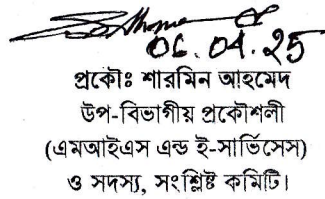 06.04.25
প্রকৌঃ শারমিন আহমেদ
উপ-বিভাগীয় প্রকৌশলী
(এমআইএস এন্ড ই-সার্ভিসেস)
ও সদস্য, সংশ্লিষ্ট কমিটি।